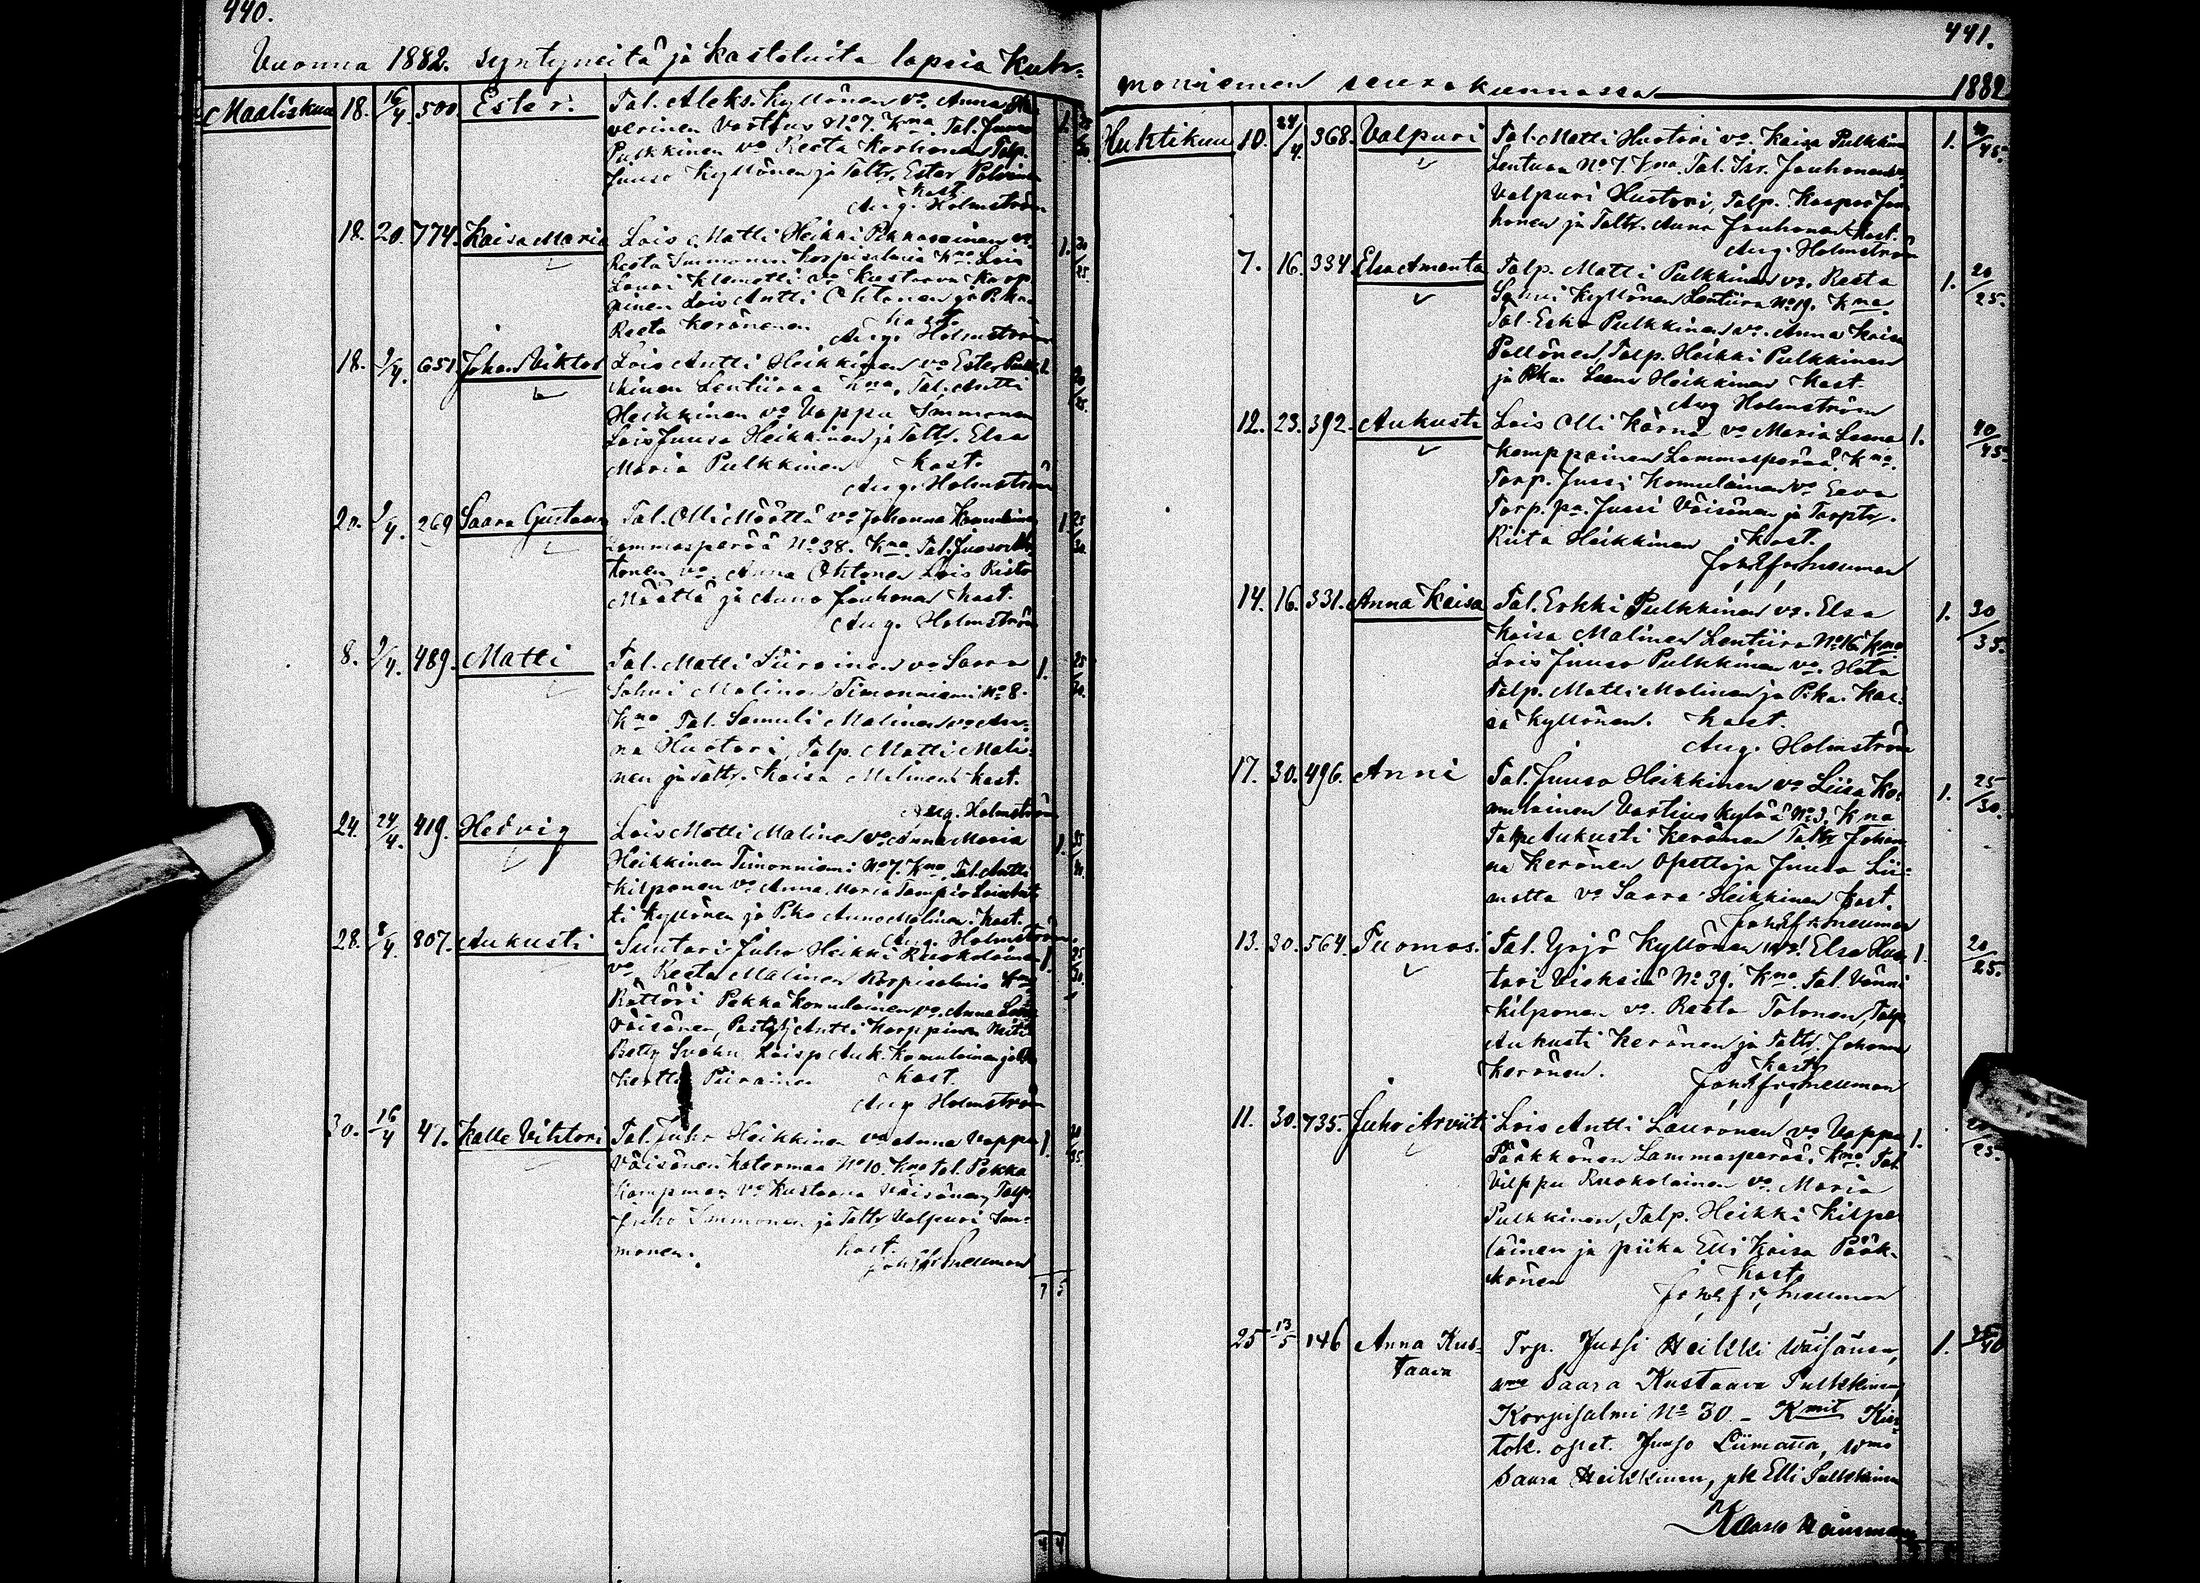 440.
Vuonna 1882. syntyneitä ja kastetuita lapsia Kuh-
Maaliskuu 18. 16/4. 500 Ester. Tal. Aleks. Kyllönen vo Anna
verinen Vartius No 7. Kma. Tal. Juuso
Pulkkinen vo Reeta Korhonen Talp.
Juuso Kyllönen ja Taltr. Ester
Kast.
Aug. Holmström
18. 20. 774. Kaisa Maria Lois Matti Heikki vo
Reeta Immonen Korpisalmia Kma. Lois
Lauri Klemetti vo Kustaava Karp
pinen Lois Antti Ohtonen ja Pka
Reeta Keränenen Kast.
Aug. Holmström
18. 9/4. 651 Johan Viktor Lois Antti Heikkinen vo Ester Pulk
kinen Lentiiraa Kma. Tal. Antti
Heikkinen vo Vappu Immonen
Lois Juuso Heikkinen ja Taltr. Elsa
Maria Pulkkinen Kast.
Aug. Holmström
20. 9/4. 269 Saara Gustaava Tal. Olli Määttä vo Johanna
Lammasperää No 38. Kma. Tal. Juuso
tonen vo Anna Ohtonen Lois Risto
Määttä ja Anna Jouhonen Kast.
Aug. Holmström
8. 9/4. 489. Matti Tal. Matti Piirainen vo Saara
Sohvi Malinen Timonniemi No 8.
Kma. Tal. Samuli Malinen vo An-
na Huotari, Talp. Matti Mali-
nen ja Taltr. Kaisa Malinen Kast.
Aug. Holmström
24. 24/4. 419. Hedvig Lois Matti Malinen vo Anna Maria
Heikkinen Timonniemi No 7. Kma. Tal. Antti
Kilponen vo Anna Maria Tampio
ti Kyllönen ja Pka Anna Malinen. Kast.
Aug. Holmström
28. 8/4. 807. Aukusti Suntari Juho Heikki Ruokolainen
vo Reeta Malinen Korpisalmia Kma
Rättäri Pekka Komulainen vo Anna
Väisänen, Antti Karppinen
Betty Svahn, Loisp. Auk. Komulainen ja
Piirainen Kast.
Aug Holmström
30. 16/4 47. Kalle Vihtori Tal. Juho Heikkinen vo Anna Vappu
Väisänen Katermaa No 10. Kma Tal. Pekka
Kampman vo Kustaava Väisänen, Talp.
Juho Immonen ja Taltr. Valpuri Im-
monen. Kast.
Snellman
441.
moniemen seurakunnassa 1882
Huhtikuu 10. 24/4. 368. Valpuri Tal. Matti Huotari vo. Kaisa Pulkkinen 1. 40/45.
Lentuaa No 7. Kma. Tal. Isr. Jouhonen vo
Valpuri Huotari, Talp. Kasper Jou
honen ja Taltr. Anna Jouhonen Kast.
Aug. Holmström
7. 16. 334 Elsa Amanta Talp. Matti Pulkkinen vo. Reeta 1. 20/25.
Sohvi Kyllönen Lentiira No 19. Kma.
Tal. Esko Pulkkinen vo. Anna Kaisa
Pallönen, Talp. Heikki Pulkkinen
ja Pka. Leena Heikkinen Kast.
Aug Holmström
12. 23. 392. Aukusti Lois Olli Kärnä vo Maria Leena 1. 40/45
Komppainen Lammasperää. Kma.
Torp. Jussi Komulainen vo Eeva
Torp. pa. Jussi Väisänen ja Torptr.
Riita Heikkinen Kast.
Snellman
14. 16. 331. Anna Kaisa Tal. Erkki Pulkkinen vo. Elsa 1. 30/35.
Kaisa Malinen Lentiira No 16. Kma
Lois Juuso Pulkkinen vo. Heta
Talp. Matti Malinen ja Pka. Kai-
sa Kyllönen. Kast.
Aug. Holmström
17. 30. 496. Anni Tal. Juuso Heikkinen vo Liisa Ko- 1. 25/30.
mulainen Vartius kylää No 3. Kma
Talp. Aukusti Keränen Taltr Johan
na Keränen Opettaja Juuso Lii-
matta vo Saara Heikkinen Kast.
Snellman
13. 30. 564. Tuomas. Tal. Yrjö Kyllönen vo. Elsa Huo- 1. 20/25.
tari Vieksiä No 39. Kma. Tal. Vänni
Kilponen vo. Reeta Tolonen, Talp
Aukusti Keränen ja Taltr. Johanna
Keränen. Kast.
Snellman
11. 30. 735. Juho Arviiti Lois Antti Lauronen vo Vappu 1.
Pääkkönen Lammasperää. Kma. Tal.
Vilppu Ruokolainen vo. Maria
Pulkkinen, Talp. Heikki Kilpe-
läinen ja piika Elli Kaisa Pääk-
könen Kast.
Snellman
25 13/5 146 Anna Kus- Trp. Jussi Heikki Wäisänen, 1.
taava
wmo Saara Kustaava Pulkkinen,
Korpisalmi No 30 - Kmit Kier-
tok. opet. Juuso Liimatta, wmo
Saara Heikkinen, pk Elli Pulkkinen